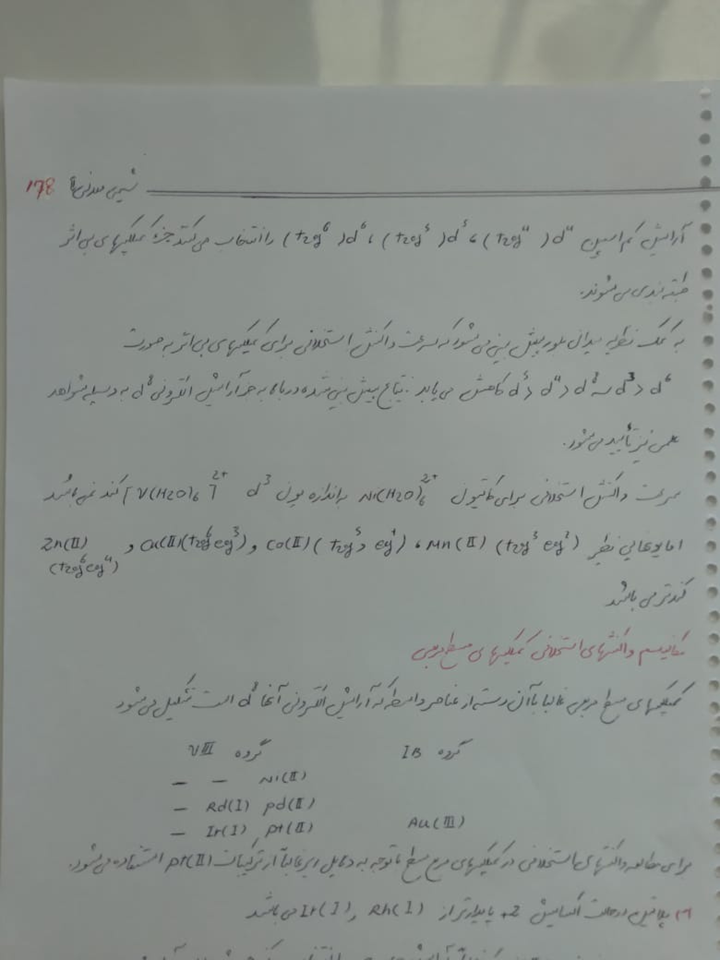 شیمی معدنی 2 178
آرایش کم اسپین d⁴ (t2g⁴) ، d⁵ (t2g⁵) ، d⁶ (t2g⁶) را انتخاب می‌کنند جزء کمپلکسهای بی اثر
طبقه بندی می‌شوند.
به کمک نظریه میدان بلور پیش بینی می‌شود که سرعت واکنش استخلافی برای کمپلکسهای بی اثر به صورت
d⁵> d⁴> d⁸ ~ d³> d⁶ کاهش می یابد. نتایج پیش بینی شده در رابطه به جز آرایش الکترونی d⁸ به وسیله شواهد
علمی نیز تأیید می‌شود.
سرعت واکنش استخلافی برای کاتیون Ni(H2O)6²⁺ به اندازه یون d³ [V(H2O)6]²⁺ کند نمی‌باشد
اما یونهایی نظیر Mn(II) (t2g³ eg²) ، Co(II) (t2g⁵ eg²) و Cu(II)(t2g⁶eg³) و Zn(II)
(t2g⁶eg⁴)
کندتر می باشد
مکانیسم واکنشهای استخلافی کمپلکسهای مسطح مربعی
کمپلکسهای مسطح مربعی غالبا با آن دسته از عناصر واسطه که آرایش الکترونی آنها d⁸ است تشکیل می‌شود
گروه VIII گروه IB
— — Ni(II)
— Rd(I) Pd(II)
— Ir(I) Pt(II) Au(III)
برای مطالعه واکنشهای استخلافی در کمپلکسهای مربع مسطح با توجه به دلایل زیر غالباً از ترکیبات Pt(II) استفاده می‌شود.
1) پلاتین در حالت اکسایش 2+ پایدارتر از Rh(I) و Ir(I) می باشد